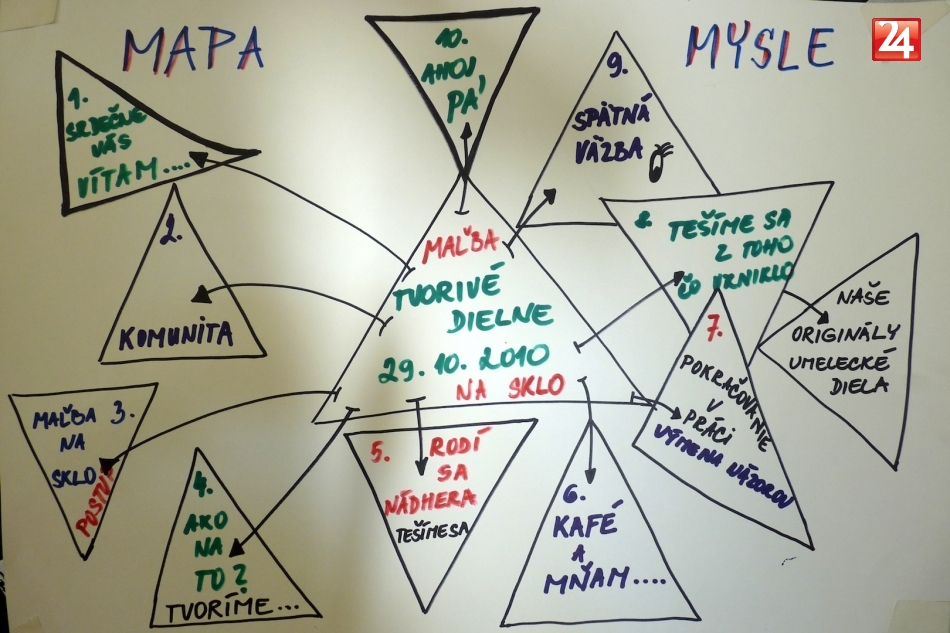 MAPA MYSLE
24
1.
SRDEČNE
VÁS
VÍTAM....
2.
KOMUNITA
MAĽBA 3.
NA
SKLO
POSTUP
4.
AKO
NA
TO?
TVORÍME...
5. RODÍ
SA
NÁDHERA
TEŠÍME SA
6.
KAFÉ
A
MŇAM....
7.
POKRAČOVANIE
V
PRÁCI
VÝMENA NÁZOROV
8. TEŠÍME SA
Z TOHO
ČO VZNIKLO
NAŠE
ORIGINÁLY
UMELECKÉ
DIELA
9.
SPÄTNÁ
VÄZBA
10.
AHOJ
PÁ
MAĽBA
TVORIVÉ
DIELNE
29. 10. 2010
NA SKLO